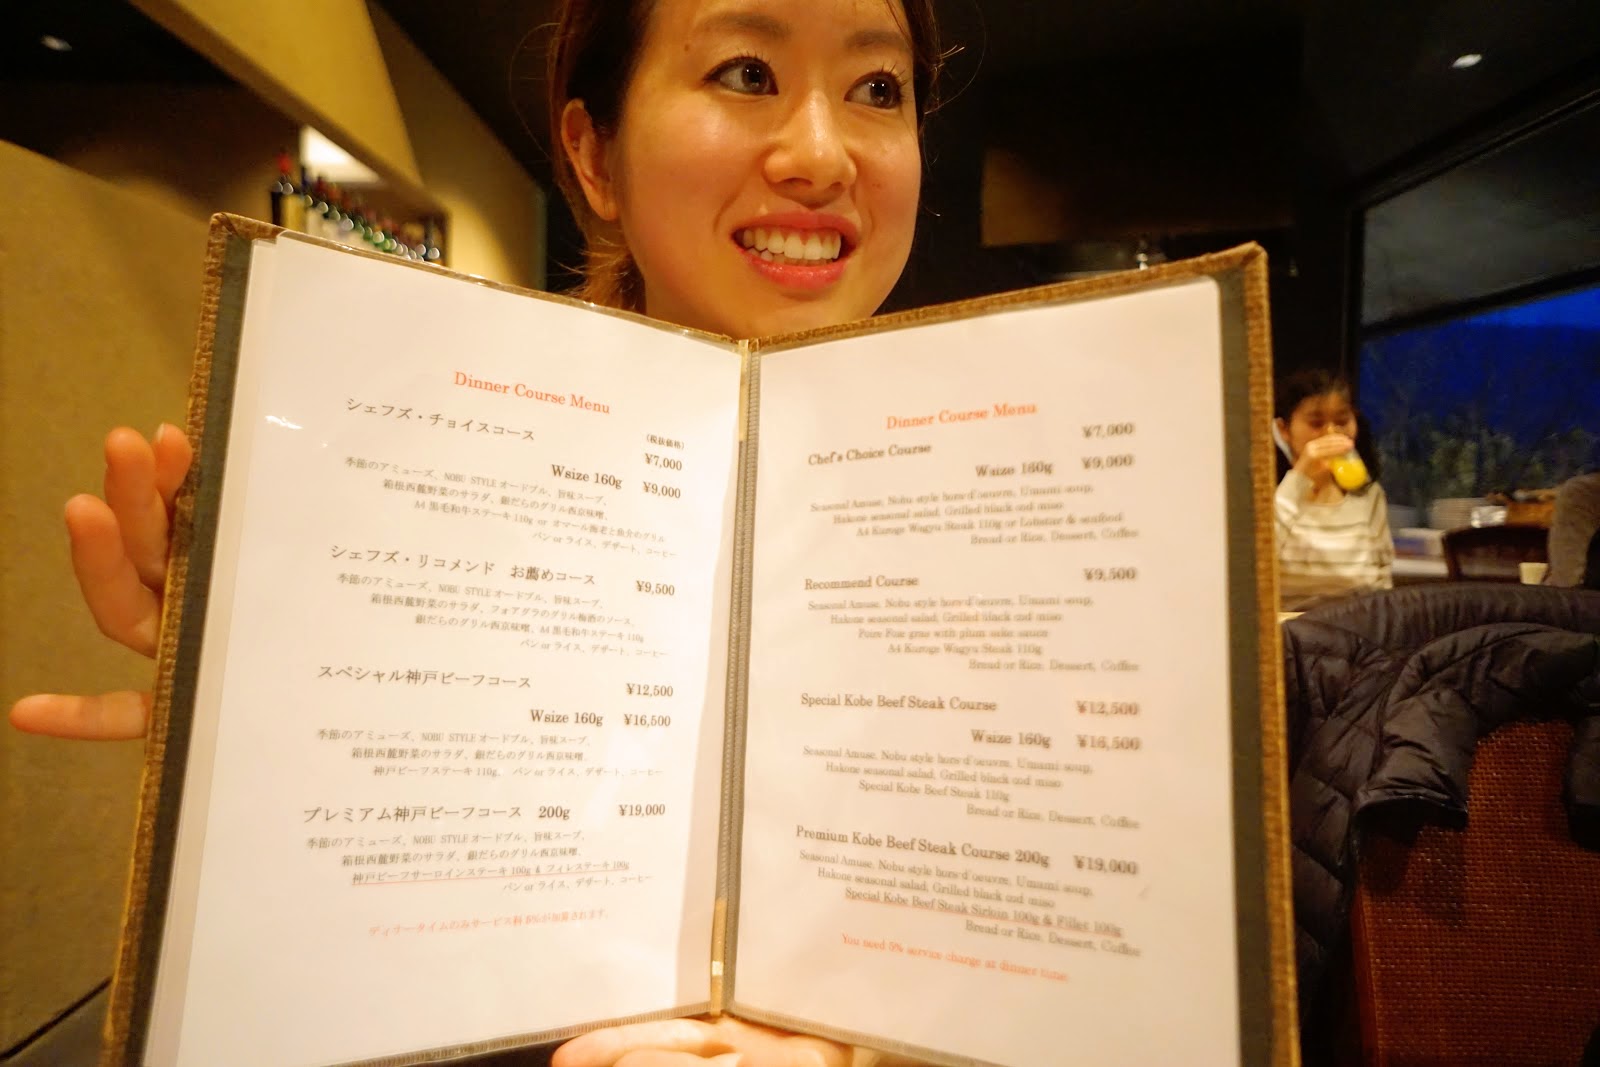 Dinner Course Menu
シェフズ・チョイスコース
(税抜価格)
¥7,000
Wsize 160g ¥9,000
季節のアミューズ、NOBU STYLEオードブル、旨味スープ、
箱根西麓野菜のサラダ、銀だらのグリル西京味噌、
A4黒毛和牛ステーキ110g or オマール海老と魚介のグリル
パン or ライス、デザート、コーヒー
シェフズ・リコメンド お薦めコース ¥9,500
季節のアミューズ、NOBU STYLEオードブル、旨味スープ、
箱根西麓野菜のサラダ、フォアグラのグリル梅酒のソース、
銀だらのグリル西京味噌、A4黒毛和牛ステーキ110g
パン or ライス、デザート、コーヒー
スペシャル神戸ビーフコース ¥12,500
Wsize 160g ¥16,500
季節のアミューズ、NOBU STYLEオードブル、旨味スープ、
箱根西麓野菜のサラダ、銀だらのグリル西京味噌、
神戸ビーフステーキ110g、 パン or ライス、デザート、コーヒー
プレミアム神戸ビーフコース 200g ¥19,000
季節のアミューズ、NOBU STYLEオードブル、旨味スープ、
箱根西麓野菜のサラダ、銀だらのグリル西京味噌、
神戸ビーフサーロインステーキ100g & フィレステーキ100g
パン or ライス、デザート、コーヒー
ディナータイムのみサービス料5%が加算されます。
Dinner Course Menu
Chef's Choice Course ¥7,000
Wsize 160g ¥9,000
Seasonal Amuse, Nobu style hors d'oeuvre, Umami soup,
Hakone seasonal salad, Grilled black cod miso
A4 Kuroge Wagyu Steak 110g or Lobster & seafood
Bread or Rice, Dessert, Coffee
Recommend Course ¥9,500
Seasonal Amuse, Nobu style hors d'oeuvre, Umami soup,
Hakone seasonal salad, Grilled black cod miso
Poire Foie gras with plum sake sauce
A4 Kuroge Wagyu Steak 110g
Bread or Rice, Dessert, Coffee
Special Kobe Beef Steak Course ¥12,500
Wsize 160g ¥16,500
Seasonal Amuse, Nobu style hors d'oeuvre, Umami soup,
Hakone seasonal salad, Grilled black cod miso
Special Kobe Beef Steak 110g
Bread or Rice, Dessert, Coffee
Premium Kobe Beef Steak Course 200g ¥19,000
Seasonal Amuse, Nobu style hors d'oeuvre, Umami soup,
Hakone seasonal salad, Grilled black cod miso
Special Kobe Beef Steak Sirloin 100g & Fillet 100g
Bread or Rice, Dessert, Coffee
You need 5% service charge at dinner time.